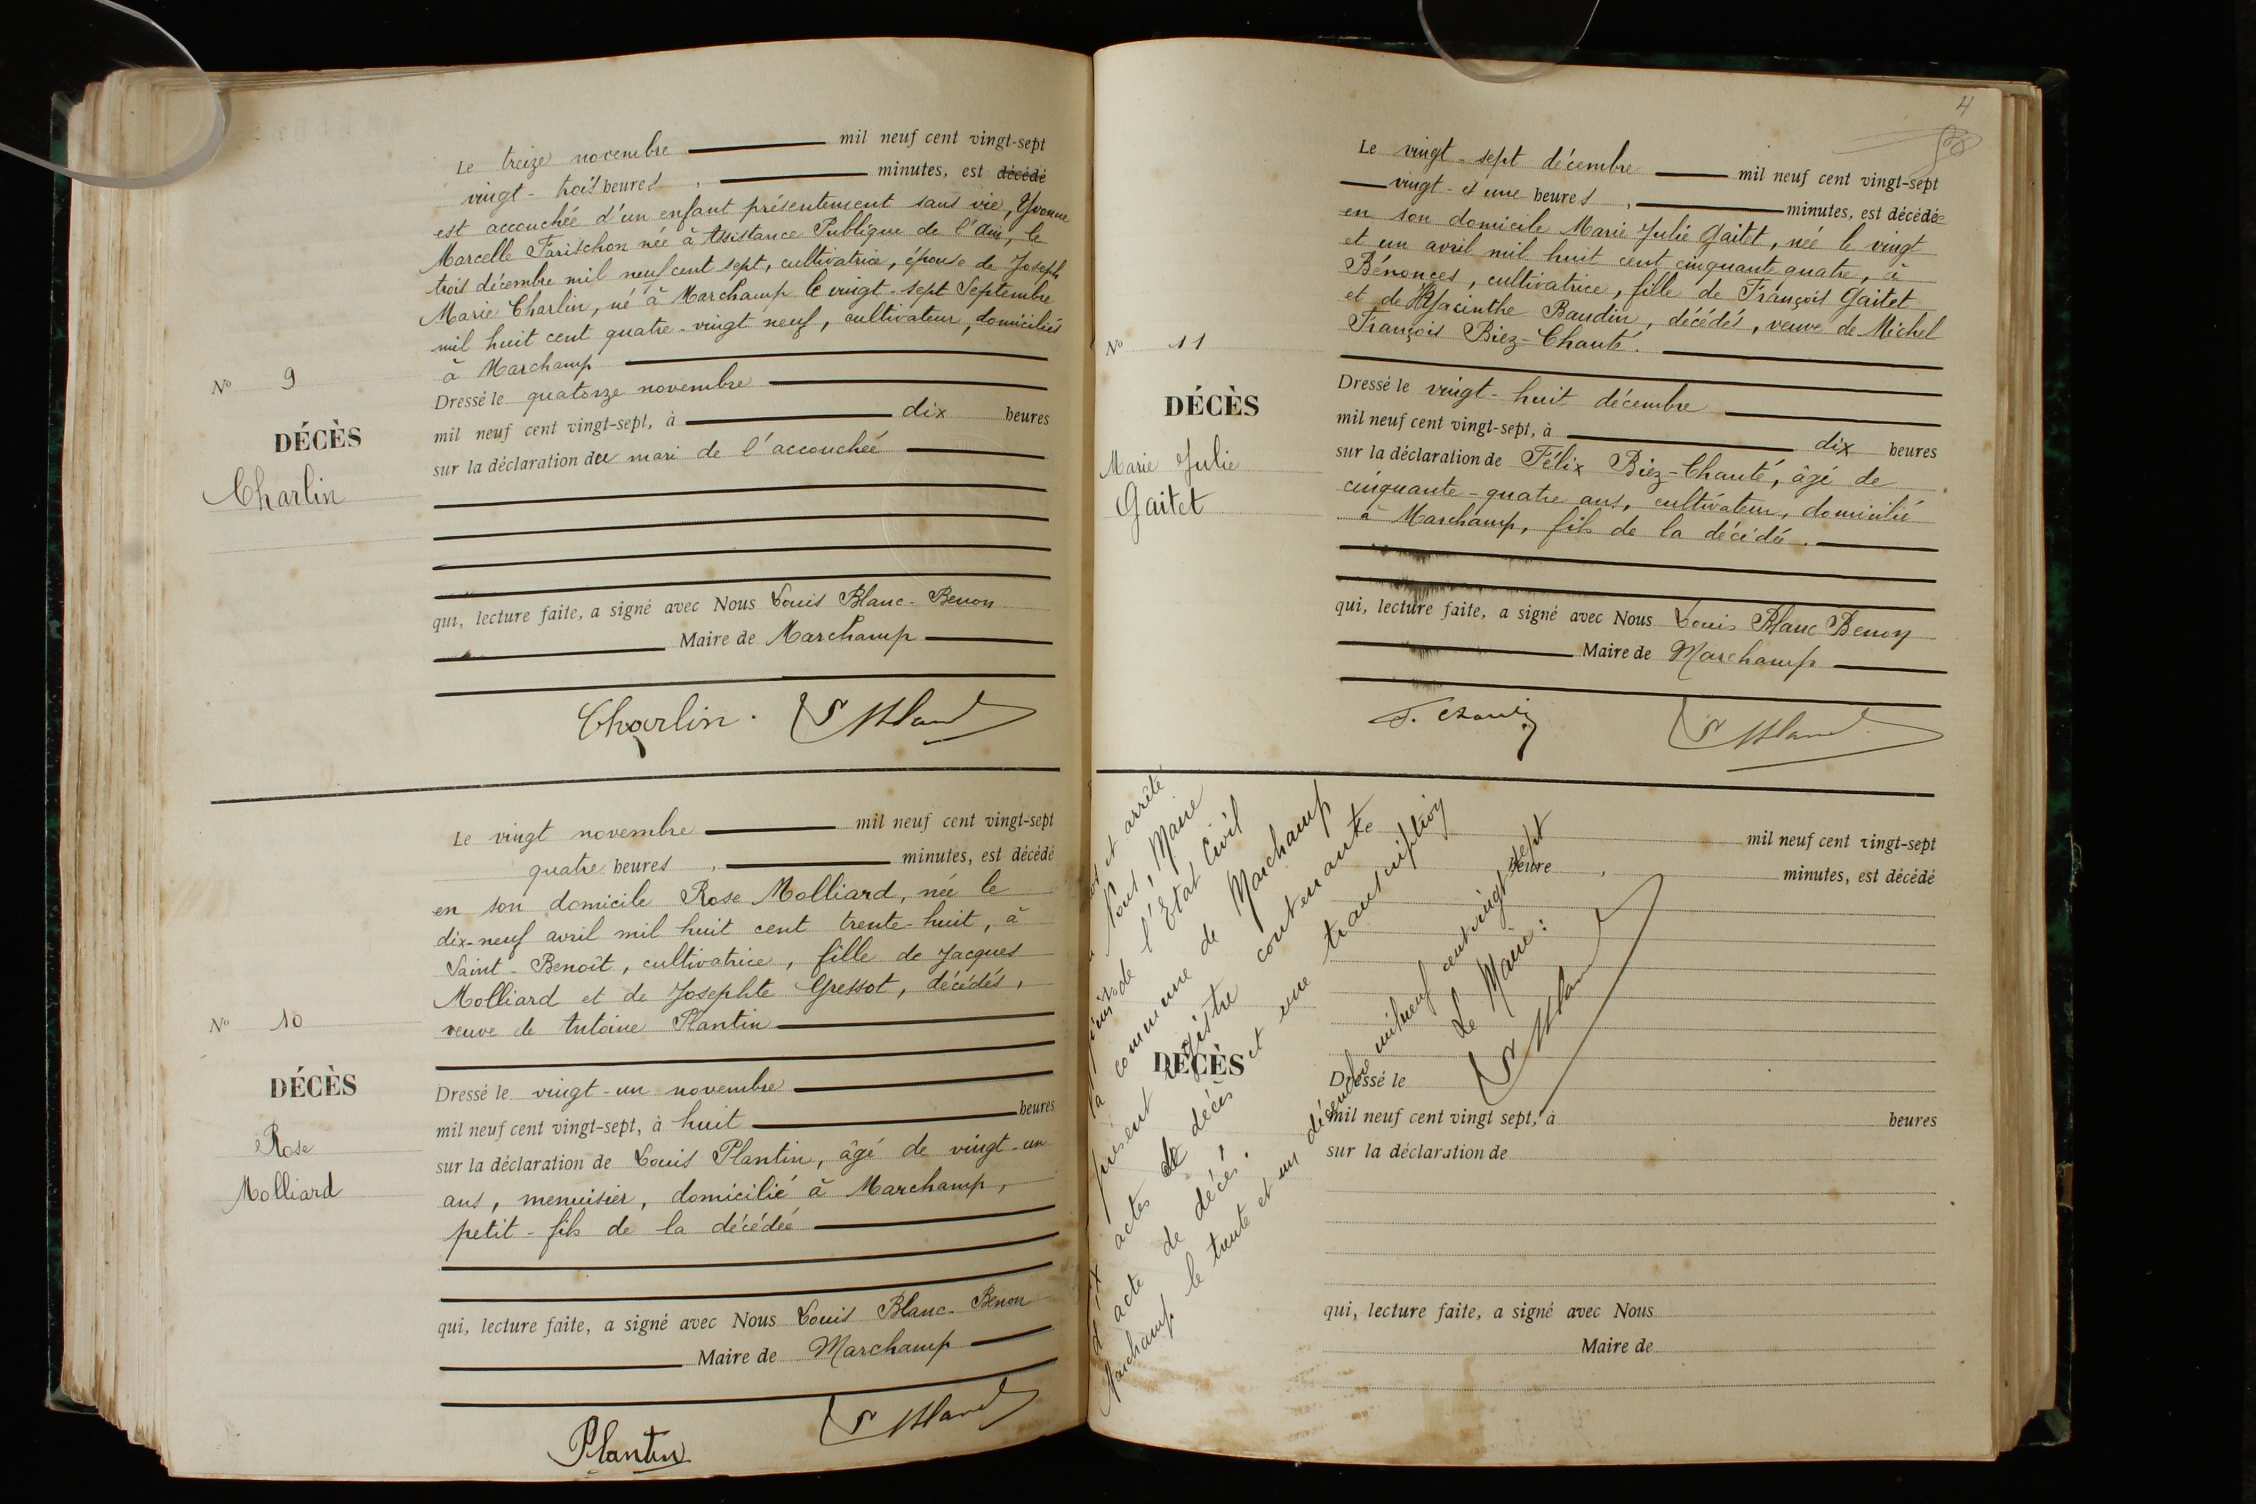 Le treize novembre mil neuf cent vingt-sept
vingt-trois heures, minutes, est décédé
est accouchée d'un enfant présentement sans vie, Yvonne
Marcelle Farischon née à Assistance Publique de l'Ain, le
trois décembre mil neuf cent sept, cultivatrice, épouse de Joseph
Marie Charlin, né à Marchamp le vingt-sept Septembre
mil huit cent quatre-vingt neuf, cultivateur, domiciliés
à Marchamp
No 9
DÉCÈS
Charlin
Dressé le quatorze novembre
mil neuf cent vingt-sept, à dix heures
sur la déclaration du mari de l'accouchée
qui, lecture faite, a signé avec Nous Louis Blanc-Benon
Maire de Marchamp
Charlin.
Le vingt novembre mil neuf cent vingt-sept
quatre heures, minutes, est décédé
en son domicile Rose Molliard, née le
dix-neuf avril mil huit cent trente-huit, à
Saint-Benoît, cultivatrice, fille de Jacques
Molliard et de Josephte Gressot, décédés,
veuve de Antoine Plantin
No 10
DÉCÈS
Rose
Molliard
Dressé le vingt-un novembre
mil neuf cent vingt-sept, à huit heures
sur la déclaration de Louis Plantin, âgé de vingt-un
ans, menuisier, domicilié à Marchamp,
petit-fils de la décédée
qui, lecture faite, a signé avec Nous Louis Blanc-Benon
Maire de Marchamp
Plantin
4
Le vingt-sept décembre mil neuf cent vingt-sept
vingt-et une heures, minutes, est décédée
en son domicile Marie Julie Gaitet, née le vingt
et un avril mil huit cent cinquante quatre, à
Bénonces, cultivatrice, fille de François Gaitet
et de Hyacinthe Baudin, décédés, veuve de Michel
François Biez-Chanté.
No 11
DÉCÈS
Marie Julie
Gaitet
Dressé le vingt-huit décembre
mil neuf cent vingt-sept, à dix heures
sur la déclaration de Félix Biez-Chanté, âgé de
cinquante-quatre ans, cultivateur, domicilié
à Marchamp, fils de la décédée.
qui, lecture faite, a signé avec Nous Louis Blanc Benon
Maire de Marchamp
et arrêté
Nous, Maire
de l'Etat Civil
la commune de Marchamp
présent registre contenant
actes de décès et une transcription
acte de décès.
Marchamp le trente et un décembre mil neuf cent vingt sept
Le Maire:
mil neuf cent vingt-sept
heure, minutes, est décédé
DÉCÈS
Dressé le
mil neuf cent vingt sept, à heures
sur la déclaration de
qui, lecture faite, a signé avec Nous
Maire de